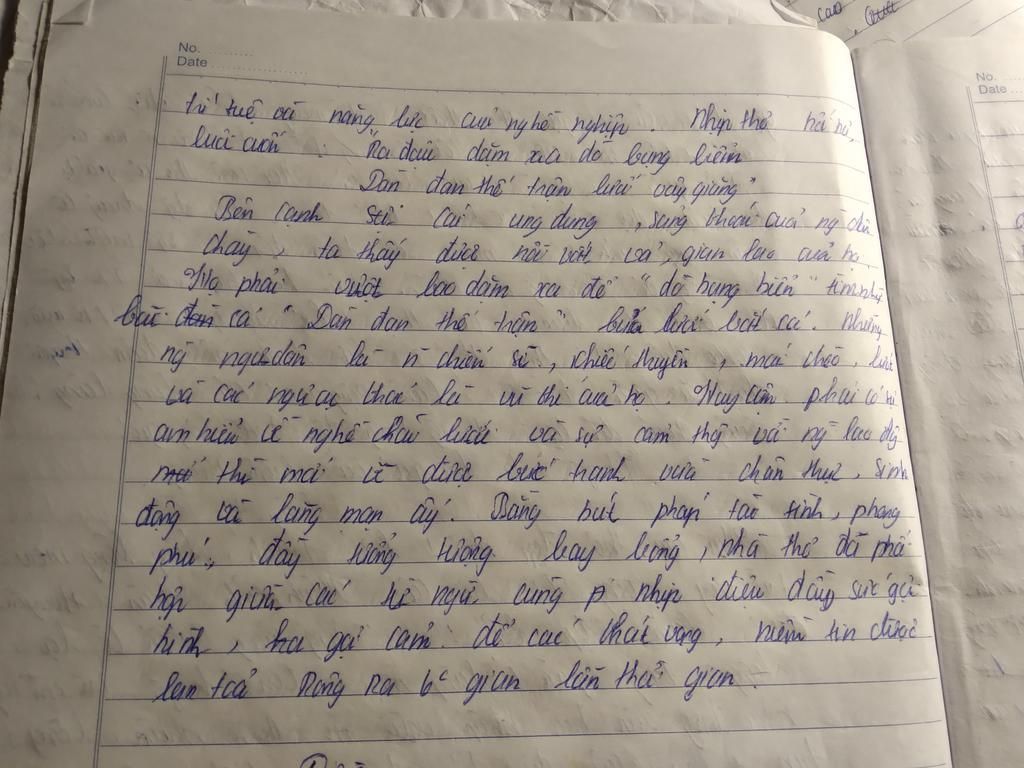 cao
No.
Date
No.
Date
trí tuệ và năng lực của nghề nghiệp. Nhịp thơ hối hả,
lưới cuối: "Ra đậu dặm xa dò bụng biểm
Dàn đan thế trận lưới vây giăng"
Bên cạnh sự cái ung dung, sảng khoái của ng dân
chài, ta thấy được nỗi vất vả, gian lao của họ.
Họ phải vượt bao dặm xa để "dò bụng biển"
cá "Dàn đan thế trận" lưới bắt cá. Những
ng ngư dân là n chiến sĩ, chiếc thuyền, mái chèo, lưới
và các ngư cụ khác là vũ khí của họ. Huy Cận phải có sự
am hiểu về nghề chài lưới và sự cảm thấy về ng lao độ
thì mới vẽ được bức tranh vừa chân thực, sinh
động và lãng mạn ấy. Bằng bút pháp tảo tình, phong
phú, đầy tưởng tượng bay bổng, nhà thơ đã phối
hợp giữa các từ ngữ cùng nhịp điệu đầy sức gợi
hình, gợi cảm để các khát vọng, niềm tin được
lan toả rộng ra gian lẫn thời gian.